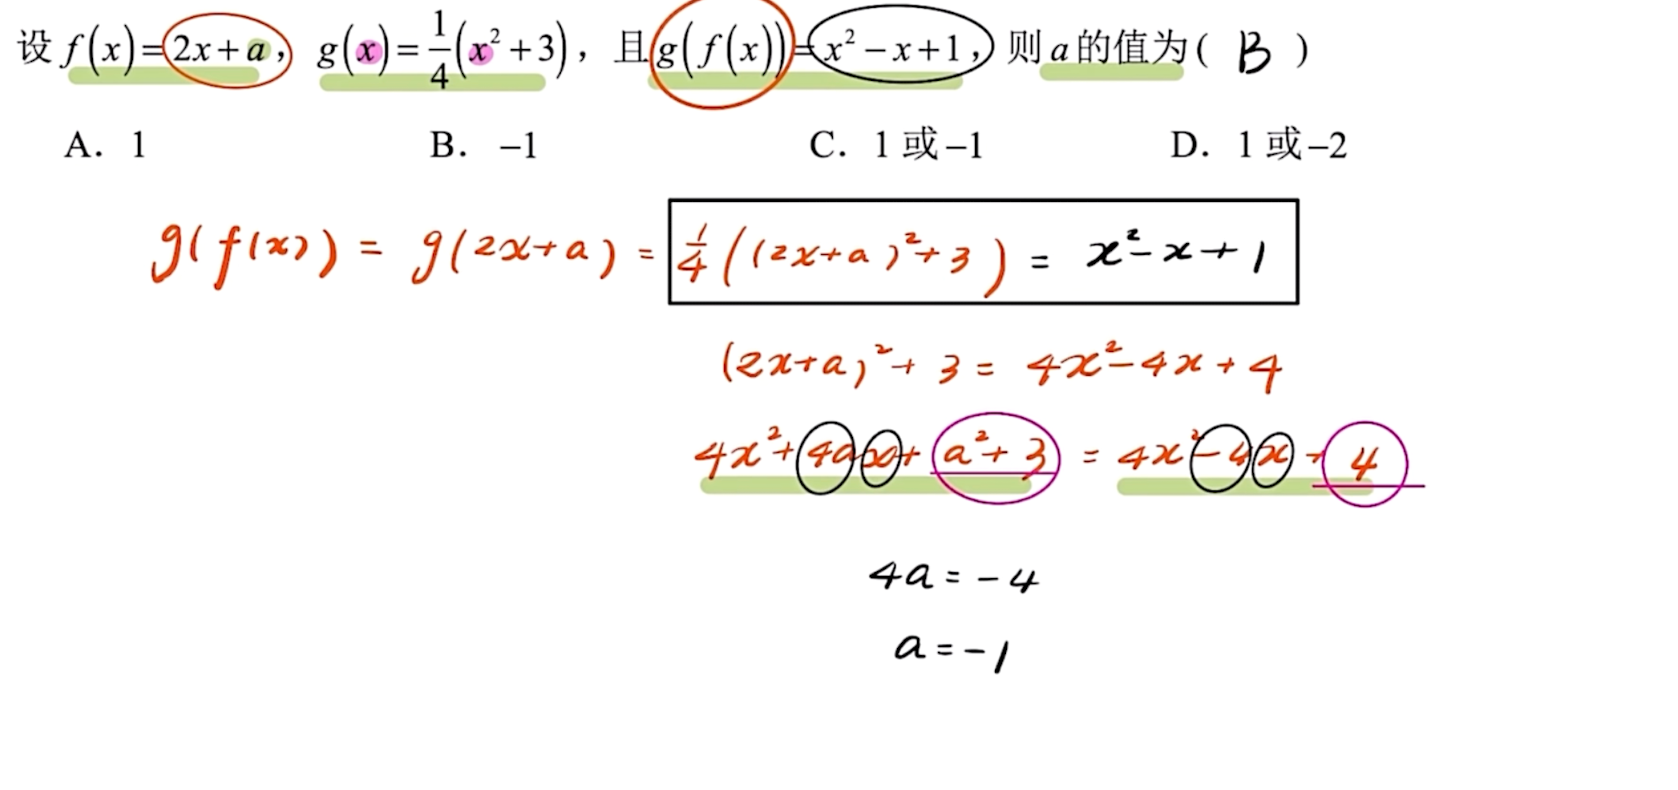 设 f(x)=2x+a, g(x)=1/4(x²+3), 且 g(f(x))=x²-x+1, 则 a 的值为( B )
A. 1 B. -1 C. 1或-1 D. 1或-2
g(f(x)) = g(2x+a) = 1/4((2x+a)²+3) = x²-x+1
(2x+a)²+3 = 4x²-4x+4
4x²+4ax+a²+3 = 4x²-4x+4
4a=-4
a=-1